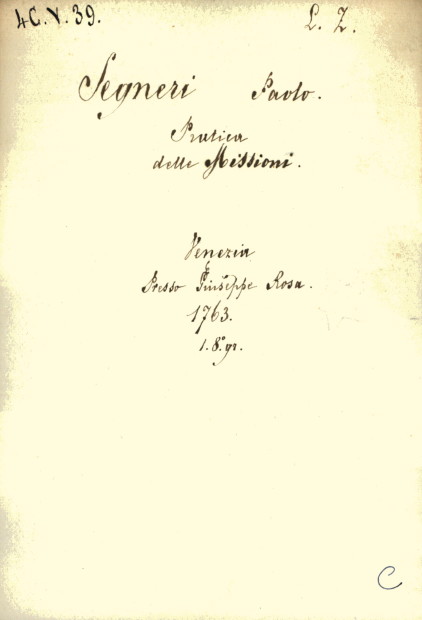 4C.V.39. L. Z.
Segneri Paolo.
Pratica
delle Missioni.
Venezia
Presso Giuseppe Rosa.
1763.
1. 8.° gr.
C